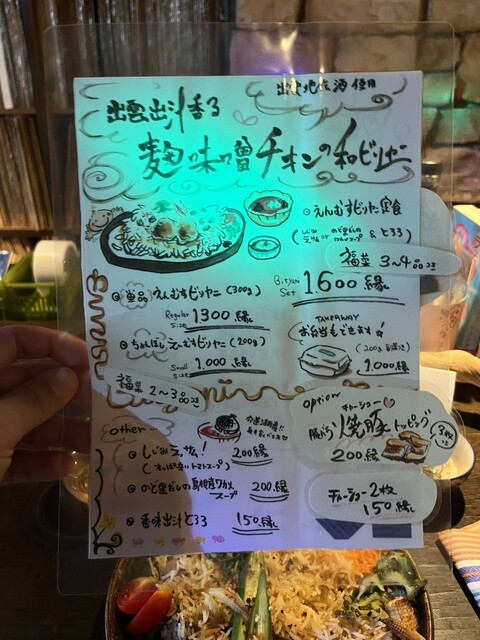 出雲北広酒使用
出雲出汁香る
麹味噌チキンの和ビリヤニ
えんむすビリヤニ定食
& とろろ
福菜 3~4品つき
Biryani Set 1600縁
単品 えんむすビリヤニ (300g)
Regular Size 1300縁
ちょんぼし えんむすビリヤニ (200g)
Small Size 1,000縁
福菜 2~3品つき
TAKEAWAY
お弁当もできます
1,000縁
other
しじみラッサム! 200縁
(すっぱ辛いトマトスープ)
のど黒だしの島根産ワカメスープ 200縁
香味出汁とろろ 150縁
option
チャーシュー
豚バラ焼豚トッピング
200縁
チャーシュー2枚
150縁